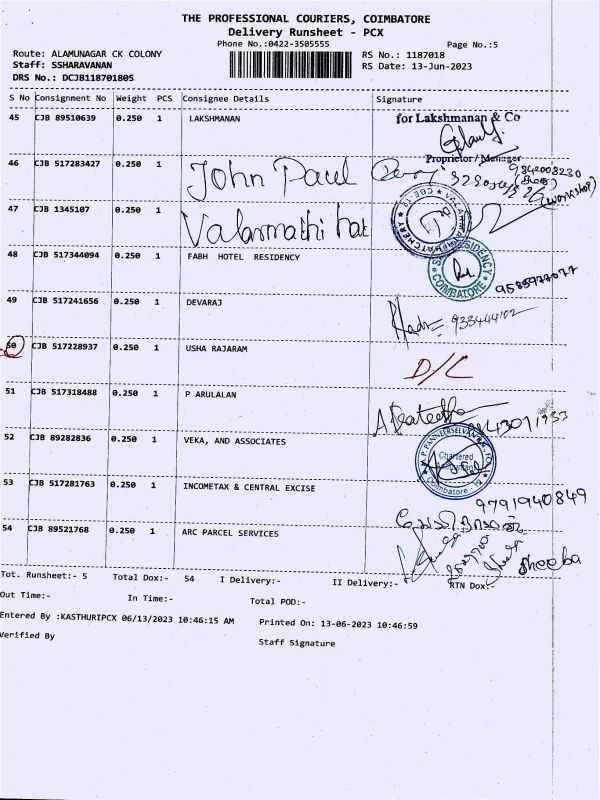 THE PROFESSIONAL COURIERS, COIMBATORE
Delivery Runsheet - PCX
Phone No.:0422-3505555 Page No.:5
Route: ALAMUNAGAR CK COLONY RS No.: 1187018
Staff: SSHARAVANAN RS Date: 13-Jun-2023
DRS No.: DCJB118701805
S No Consignment No Weight PCS Consignee Details Signature
45 CJB 89510639 0.250 1 LAKSHMANAN for Lakshmanan & Co
Proprietor / Manager
46 CJB 517283427 0.250 1 John Paul 9842008230
(workshop)
47 CJB 1345107 0.250 1 Valarmathi hat
48 CJB 517344094 0.250 1 FABH HOTEL RESIDENCY COIMBATORE
49 CJB 517241656 0.250 1 DEVARAJ
50 CJB 517228937 0.250 1 USHA RAJARAM D/L
51 CJB 517318488 0.250 1 P ARULALAN
52 CJB 89282836 0.250 1 VEKA, AND ASSOCIATES Chartered Accountant Coimbatore
53 CJB 517281763 0.250 1 INCOMETAX & CENTRAL EXCISE 9791940849
54 CJB 89521768 0.250 1 ARC PARCEL SERVICES Sheeba
Tot. Runsheet:- 5 Total Dox:- 54 I Delivery:- II Delivery:- RTN Dox:-
Out Time:- In Time:- Total POD:-
Entered By :KASTHURIPCX 06/13/2023 10:46:15 AM Printed On: 13-06-2023 10:46:59
Verified By Staff Signature